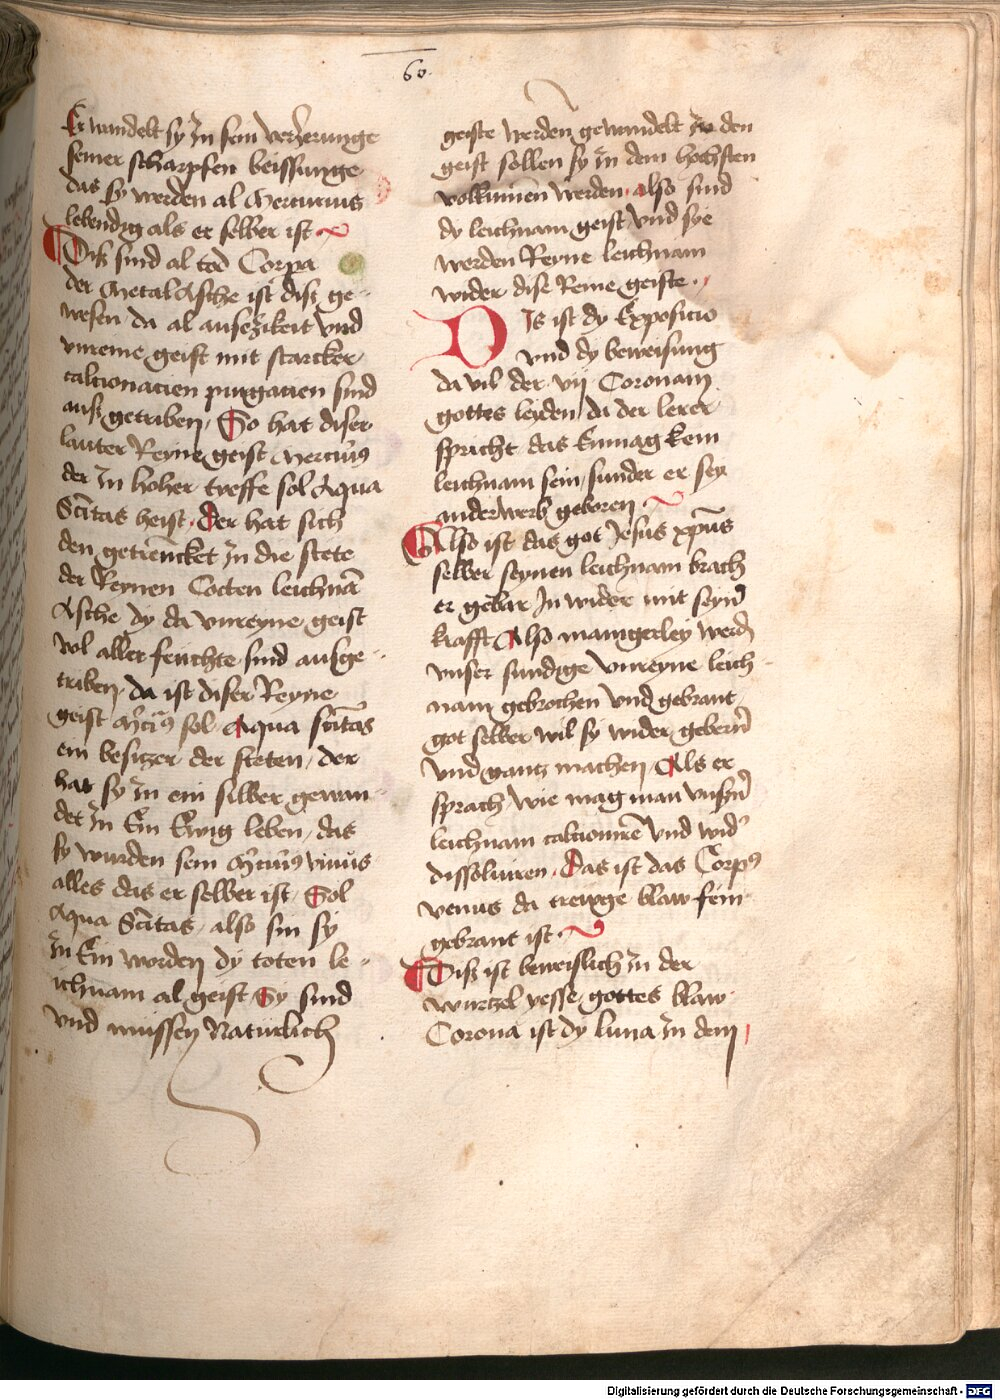 60.
Er wandelt sy jn sein verczerunge
seiner scharpfen beissunge
das sy werden al Mercurius
lebendig als er selber ist
Dis sind al tod Corpa
der Metal Asche ist dise ge-
wesen da al auseczikeit vnd
vnreine geist mit starcker
calcionacien purgacien sind
auß getriben, So hat diser
lauter Reyne geist Mercius
der jn hoher treffe sol Aqua
Scitas heist. Der hat sich
den getrencket jn die stete
der Reynen Tocten leichnam
Asche dy da vnreyne geist
vol aller feuchte sind ausge-
triben, da ist diser Reyne
geist Mercius sol Aqua scitas
ein besiczer der steten, der
hat sy jn ein silber gewan-
det jn Ein Ewig leben, das
sy wurden sein Mercius viuus
alles das er selber ist Sol
Aqua Scitas, also sin sy
jn Ein worden dy toten le-
ichnam al geist Sy sind
vnd müssen Naturlich
geiste werden gewandelt zu den
geist sollen sy jn dem hochsten
volkumen werden also sind
dy leichnam geist vnd sye
werden Reyne leichnam
wider dise Reine geiste.
Dis ist dy Exposicio
vnd dy beweisung
da vil der vij Coronam
gottes leyden da der lerer
spricht das Enmag kein
leichnam sein, sunder er sey
anderwerb geboren
Also ist das got Jesus xpus
selber seynen leichnam brach
er gebar jn wider mit seyner
krafft Also manigerley werden
vnser sundige vnreyne leich-
nam gebrochen vnd gebrant
got selber wil sy wider gebern
vnd gancz machen, Als er
sprach wie mag man vnsern
leichnam calcionire vnd wider
dissoluiren. Das ist das Corpus
venus da trewge blaw fein
gebrant ist.
Dis ist beweislich jn der
wurczel yesse, gottes blaw
Corona ist dy luna jn dem
Digitalisierung gefördert durch die Deutsche Forschungsgemeinschaft - DFG